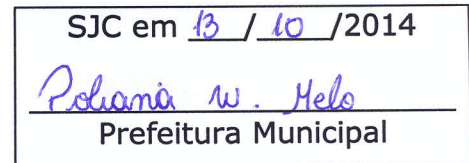 SJC em 13 / 10 /2014
Poliana W. Melo
Prefeitura Municipal